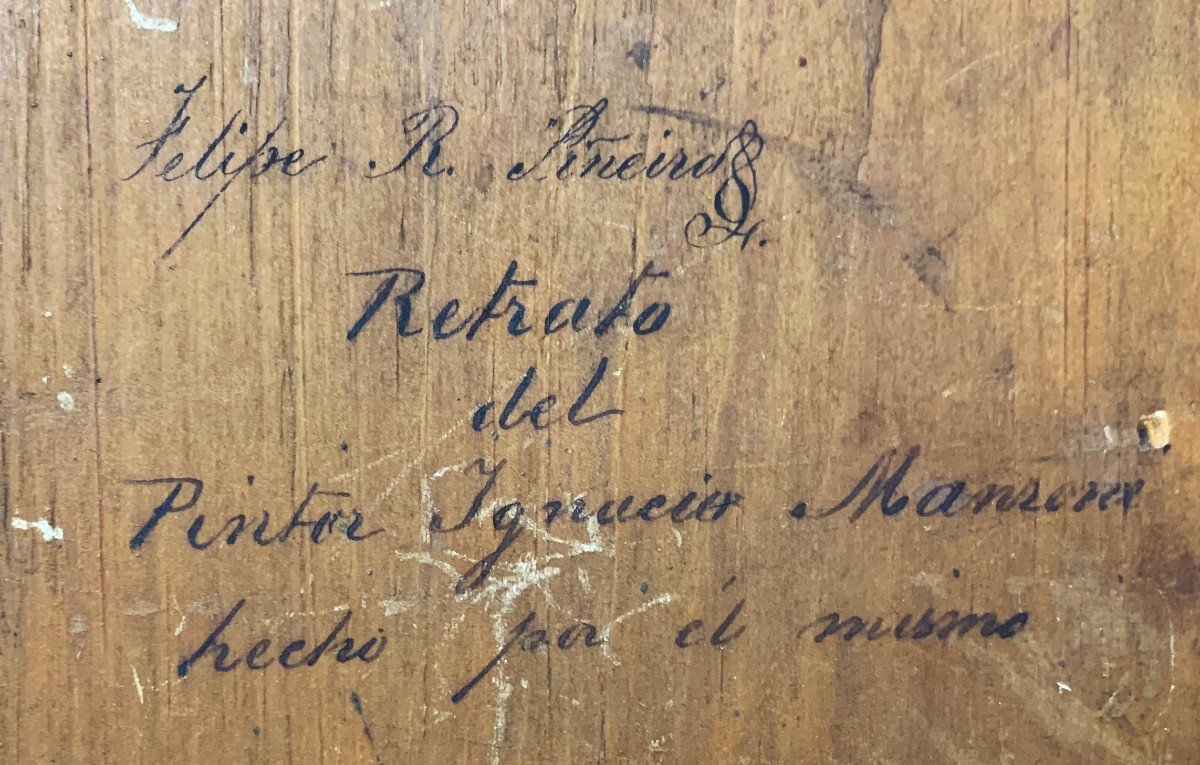 Felipe R. Piñeiro
Retrato
del
Pintor Ignacio Manzoni
hecho por él mismo